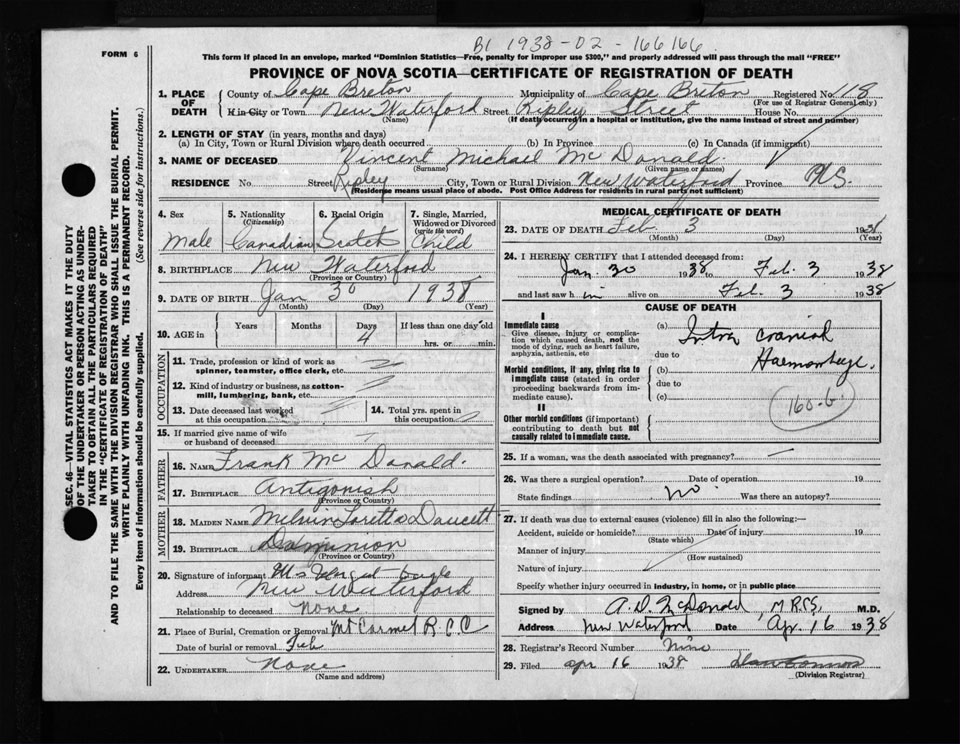 B1 1938-02-166166
FORM 6
This form if placed in an envelope, marked "Dominion Statistics—Free, penalty for improper use $300," and properly addressed will pass through the mail "FREE"
PROVINCE OF NOVA SCOTIA—CERTIFICATE OF REGISTRATION OF DEATH
SEC. 46—VITAL STATISTICS ACT MAKES IT THE DUTY
OF THE UNDERTAKER OR PERSON ACTING AS UNDER-
TAKER TO OBTAIN ALL THE PARTICULARS REQUIRED
IN THE "CERTIFICATE OF REGISTRATION OF DEATH"
AND TO FILE THE SAME WITH THE DIVISION REGISTRAR WHO SHALL ISSUE THE BURIAL PERMIT.
WRITE PLAINLY WITH UNFADING INK. THIS IS A PERMANENT RECORD.
Every item of information should be carefully supplied. (See reverse side for instructions.)
1. PLACE OF DEATH County of Cape Breton Municipality of Cape Breton Registered No. 118
(For use of Registrar General only)
If in City or Town New Waterford Street Ripley Street House No.
(Name) (If death occurred in a hospital or institution, give the name instead of street and number)
2. LENGTH OF STAY (in years, months and days)
(a) In City, Town or Rural Division where death occurred (b) In Province (c) In Canada (if immigrant)
3. NAME OF DECEASED Vincent Michael McDonald
(Surname) (Given name or names)
RESIDENCE No. Street Ripley City, Town or Rural Division New Waterford Province N.S.
(Residence means usual place of abode. Post Office Address for residents in rural parts not sufficient)
4. Sex 5. Nationality (Citizenship) 6. Racial Origin 7. Single, Married, Widowed or Divorced (write the word)
Male Canadian Scotch Child
8. BIRTHPLACE New Waterford
(Province or Country)
9. DATE OF BIRTH Jan 30 1938
(Month) (Day) (Year)
10. AGE in Years Months Days If less than one day old
4 hrs. or min.
OCCUPATION
11. Trade, profession or kind of work as
spinner, teamster, office clerk, etc.
12. Kind of industry or business, as cotton-
mill, lumbering, bank, etc.
13. Date deceased last worked
at this occupation
14. Total yrs. spent in
this occupation
15. If married give name of wife
or husband of deceased
FATHER
16. NAME Frank McDonald.
17. BIRTHPLACE Antigonish
(Province or Country)
MOTHER
18. MAIDEN NAME Loretta Doucett
19. BIRTHPLACE Dominion
(Province or Country)
20. Signature of informant
Address New Waterford
Relationship to deceased None
21. Place of Burial, Cremation or Removal Mt Carmel R.C.C
Date of burial or removal Feb
22. UNDERTAKER None
(Name and address)
MEDICAL CERTIFICATE OF DEATH
23. DATE OF DEATH Feb. 3 1938
(Month) (Day) (Year)
24. I HEREBY CERTIFY that I attended deceased from:
Jan 30 1938 to Feb. 3 1938
and last saw h im alive on Feb. 3 1938
CAUSE OF DEATH
I
Immediate cause
Give disease, injury or complica-
tion which caused death, not the
mode of dying, such as heart failure,
asphyxia, asthenia, etc
(a) Intra cranial
due to
Morbid conditions, if any, giving rise to
immediate cause (stated in order
proceeding backwards from im-
mediate cause).
(b) Haemorrhage.
due to
(c)
II
Other morbid conditions (if important)
contributing to death but not
causally related to immediate cause.
160-b.
25. If a woman, was the death associated with pregnancy? —
26. Was there a surgical operation? Date of operation 19
State findings no Was there an autopsy?
27. If death was due to external causes (violence) fill in also the following:—
Accident, suicide or homicide? Date of injury 19
(State which)
Manner of injury
(How sustained)
Nature of injury
Specify whether injury occurred in industry, in home, or in public place
Signed by A. D. McDonald, M.R.C.S. M.D.
Address New Waterford Date Apr. 16 1938
28. Registrar's Record Number Nine
29. Filed apr 16 1938
(Division Registrar)